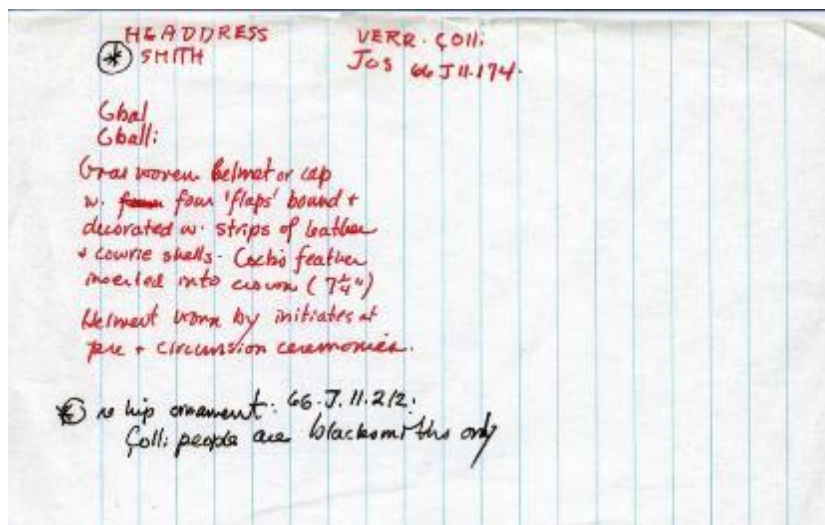 HEADDRESS
* SMITH
VERR. GOLLI
JOS 66 J 11.174.
Gbal
Gballi
Gras woven helmet or cap
w. four 'flaps' bound +
decorated w. strips of leather
+ cowrie shells. Cocks feather
inserted into crown (7¼")
Helmet worn by initiates at
pre + circumsion ceremonies.
* re hip ornament: 66.J.11.212:
Golli people are blacksmiths only